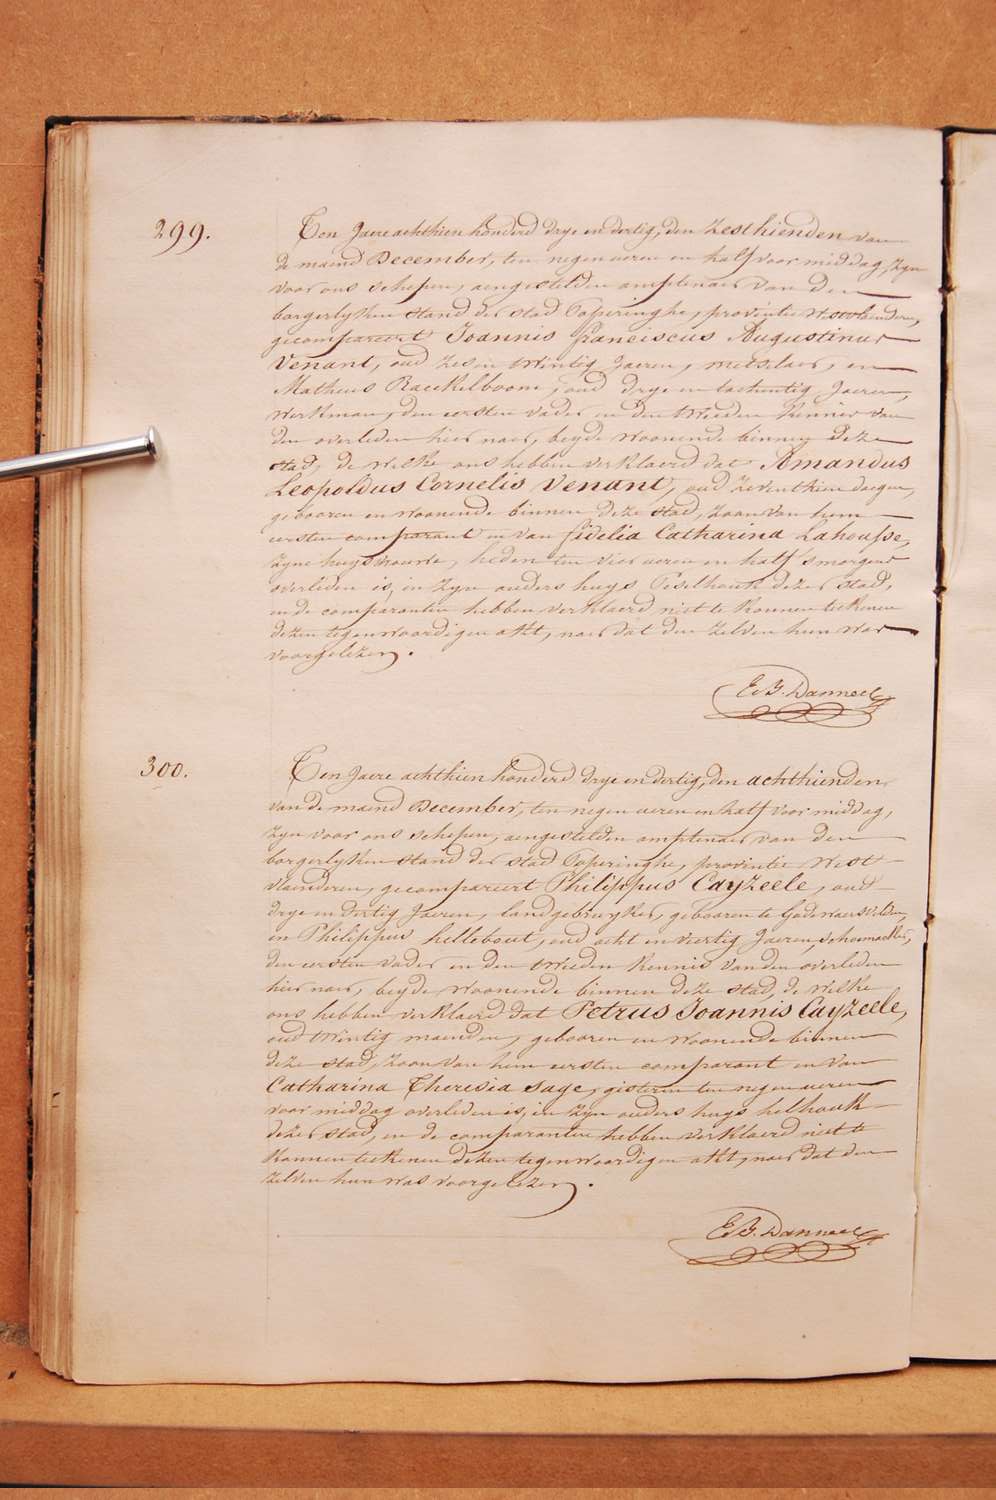 299.
Ten Jaere achthien honderd drye en dertig, den zesthienden van
de maend December, ten negen ueren en half voor middag, zyn
voor ons schepen, aengestelden amptenaer van den
borgerlyken stand der stad Poperinghe, provintie Westvlaenderen,
gecompareert Joannis Franciscus Augustinus
Venant, oud zes en twintig Jaeren, metselaer, en
Matheus Baeckelboom, oud drye en tachentig Jaeren,
werkman, den eersten vader en den tweeden kennis van
den overleden hier naer, beyde woonende binnen deze
stad, de welke ons hebben verklaerd dat Amandus
Leopoldus Cornelis Venant, oud zeventhien daegen,
gebooren en woonende binnen deze stad, zoon van hem
eersten comparant en van fidelia Catharina Lahousse,
zyne huysvrouw, heden ten vier ueren en half 's morgens
overleden is, in zyn ouders huys Peselhoek dezer stad,
en de comparanten hebben verklaerd niet te konnen teekenen
dezen tegenwoordigen akt, naer dat den zelven hun was
voorgelezen.
E. B. Danneel
300.
Ten Jaere achthien honderd drye en dertig, den achthienden
van de maend December, ten negen ueren en half voor middag,
zyn voor ons schepen, aengestelden amptenaer van den
borgerlyken stand der stad Poperinghe, provintie West-
vlaenderen, gecompareert Philippus Cayzeele, oud
drye en dertig Jaeren, landgebruyker, gebooren te Godewaersvelden,
en Philippus hellebout, oud acht en veertig Jaeren, schoemaeker,
den eersten vader en den tweeden kennis van den overleden
hier naer, beyde woonende binnen deze stad, de welke
ons hebben verklaerd dat Petrus Joannis Cayzeele,
oud twintig maenden, gebooren en woonende binnen
deze stad, zoon van hem eersten comparant en van
Catharina Theresia Sage, gisteren ten negen ueren
voor middag overleden is, in zyn ouders huys helhoek
dezer stad, en de comparanten hebben verklaerd niet te
konnen teekenen dezen tegenwoordigen akt, naer dat den
zelven hun was voorgelezen.
E. B. Danneel